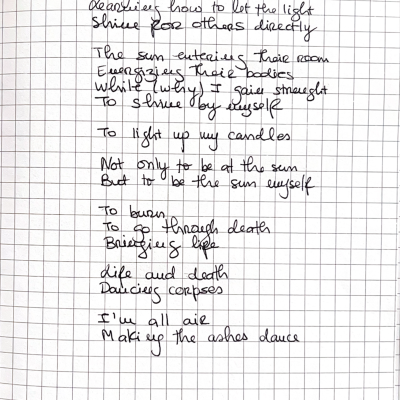 Learning how to let the light
shine for others directly
The sun entering their room
Energizing their bodies
While (why) I gain straught
To shine by myself
To light up my candles
Not only to be at the sun
But to be the sun myself
To burn
To go through death
Bringing life
Life and death
Dancing corpses
I'm all air
Making the ashes dance